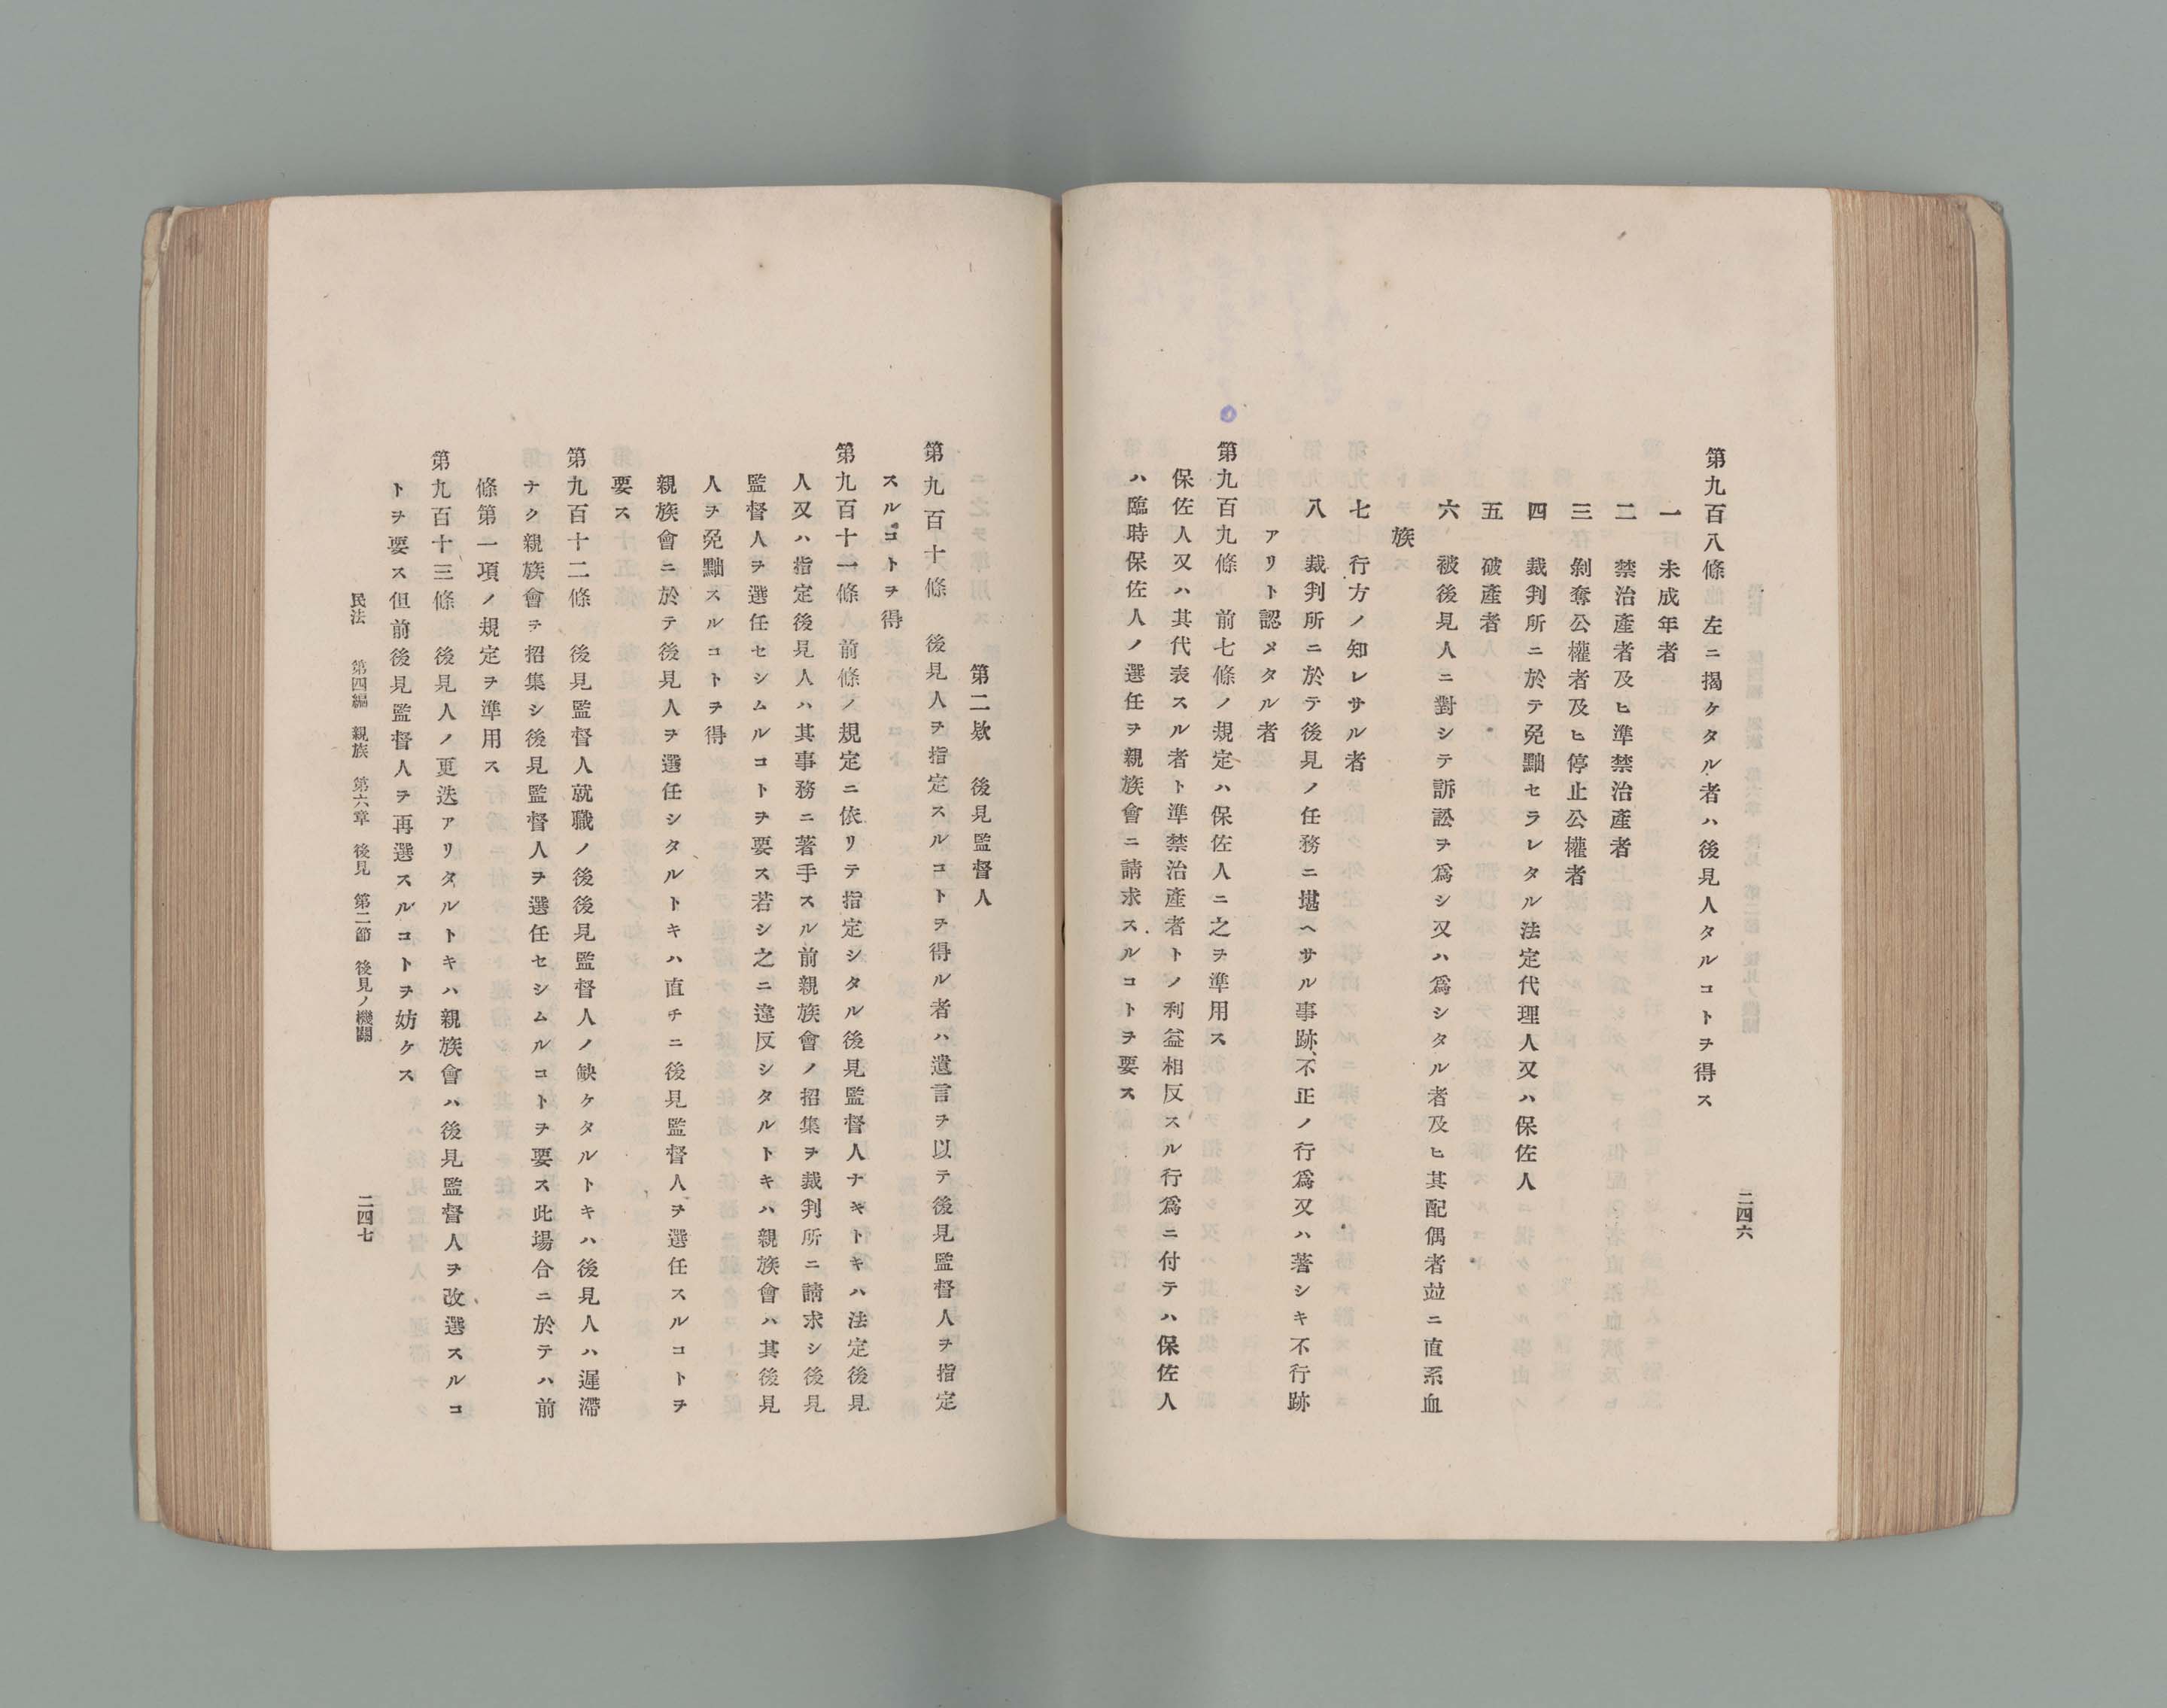 二四六
第九百八條　左ニ揭ケタル者ハ後見人タルコトヲ得ス
一　未成年者
二　禁治產者及ヒ準禁治產者
三　剝奪公權者及ヒ停止公權者
四　裁判所ニ於テ免黜セラレタル法定代理人又ハ保佐人
五　破產者
六　被後見人ニ對シテ訴訟ヲ爲シ又ハ爲シタル者及ヒ其配偶者竝ニ直系血
族
七　行方ノ知レサル者
八　裁判所ニ於テ後見ノ任務ニ堪ヘサル事跡、不正ノ行爲又ハ著シキ不行跡
アリト認メタル者
第九百九條　前七條ノ規定ハ保佐人ニ之ヲ準用ス
保佐人又ハ其代表スル者ト準禁治產者トノ利益相反スル行爲ニ付テハ保佐人
ハ臨時保佐人ノ選任ヲ親族會ニ請求スルコトヲ要ス
第二欵　後見監督人
第九百十條　後見人ヲ指定スルコトヲ得ル者ハ遺言ヲ以テ後見監督人ヲ指定
スルコトヲ得
第九百十一條　前條ノ規定ニ依リテ指定シタル後見監督人ナキトキハ法定後見
人又ハ指定後見人ハ其事務ニ著手スル前親族會ノ招集ヲ裁判所ニ請求シ後見
監督人ヲ選任セシムルコトヲ要ス若シ之ニ違反シタルトキハ親族會ハ其後見
人ヲ免黜スルコトヲ得
親族會ニ於テ後見人ヲ選任シタルトキハ直チニ後見監督人ヲ選任スルコトヲ
要ス
第九百十二條　後見監督人就職ノ後後見監督人ノ缺ケタルトキハ後見人ハ遲滯
ナク親族會ヲ招集シ後見監督人ヲ選任セシムルコトヲ要ス此場合ニ於テハ前
條第一項ノ規定ヲ準用ス
第九百十三條　後見人ノ更迭アリタルトキハ親族會ハ後見監督人ヲ改選スルコ
トヲ要ス但前後見監督人ヲ再選スルコトヲ妨ケス
民法　第四編　親族　第六章　後見　第二節　後見ノ機關
二四七